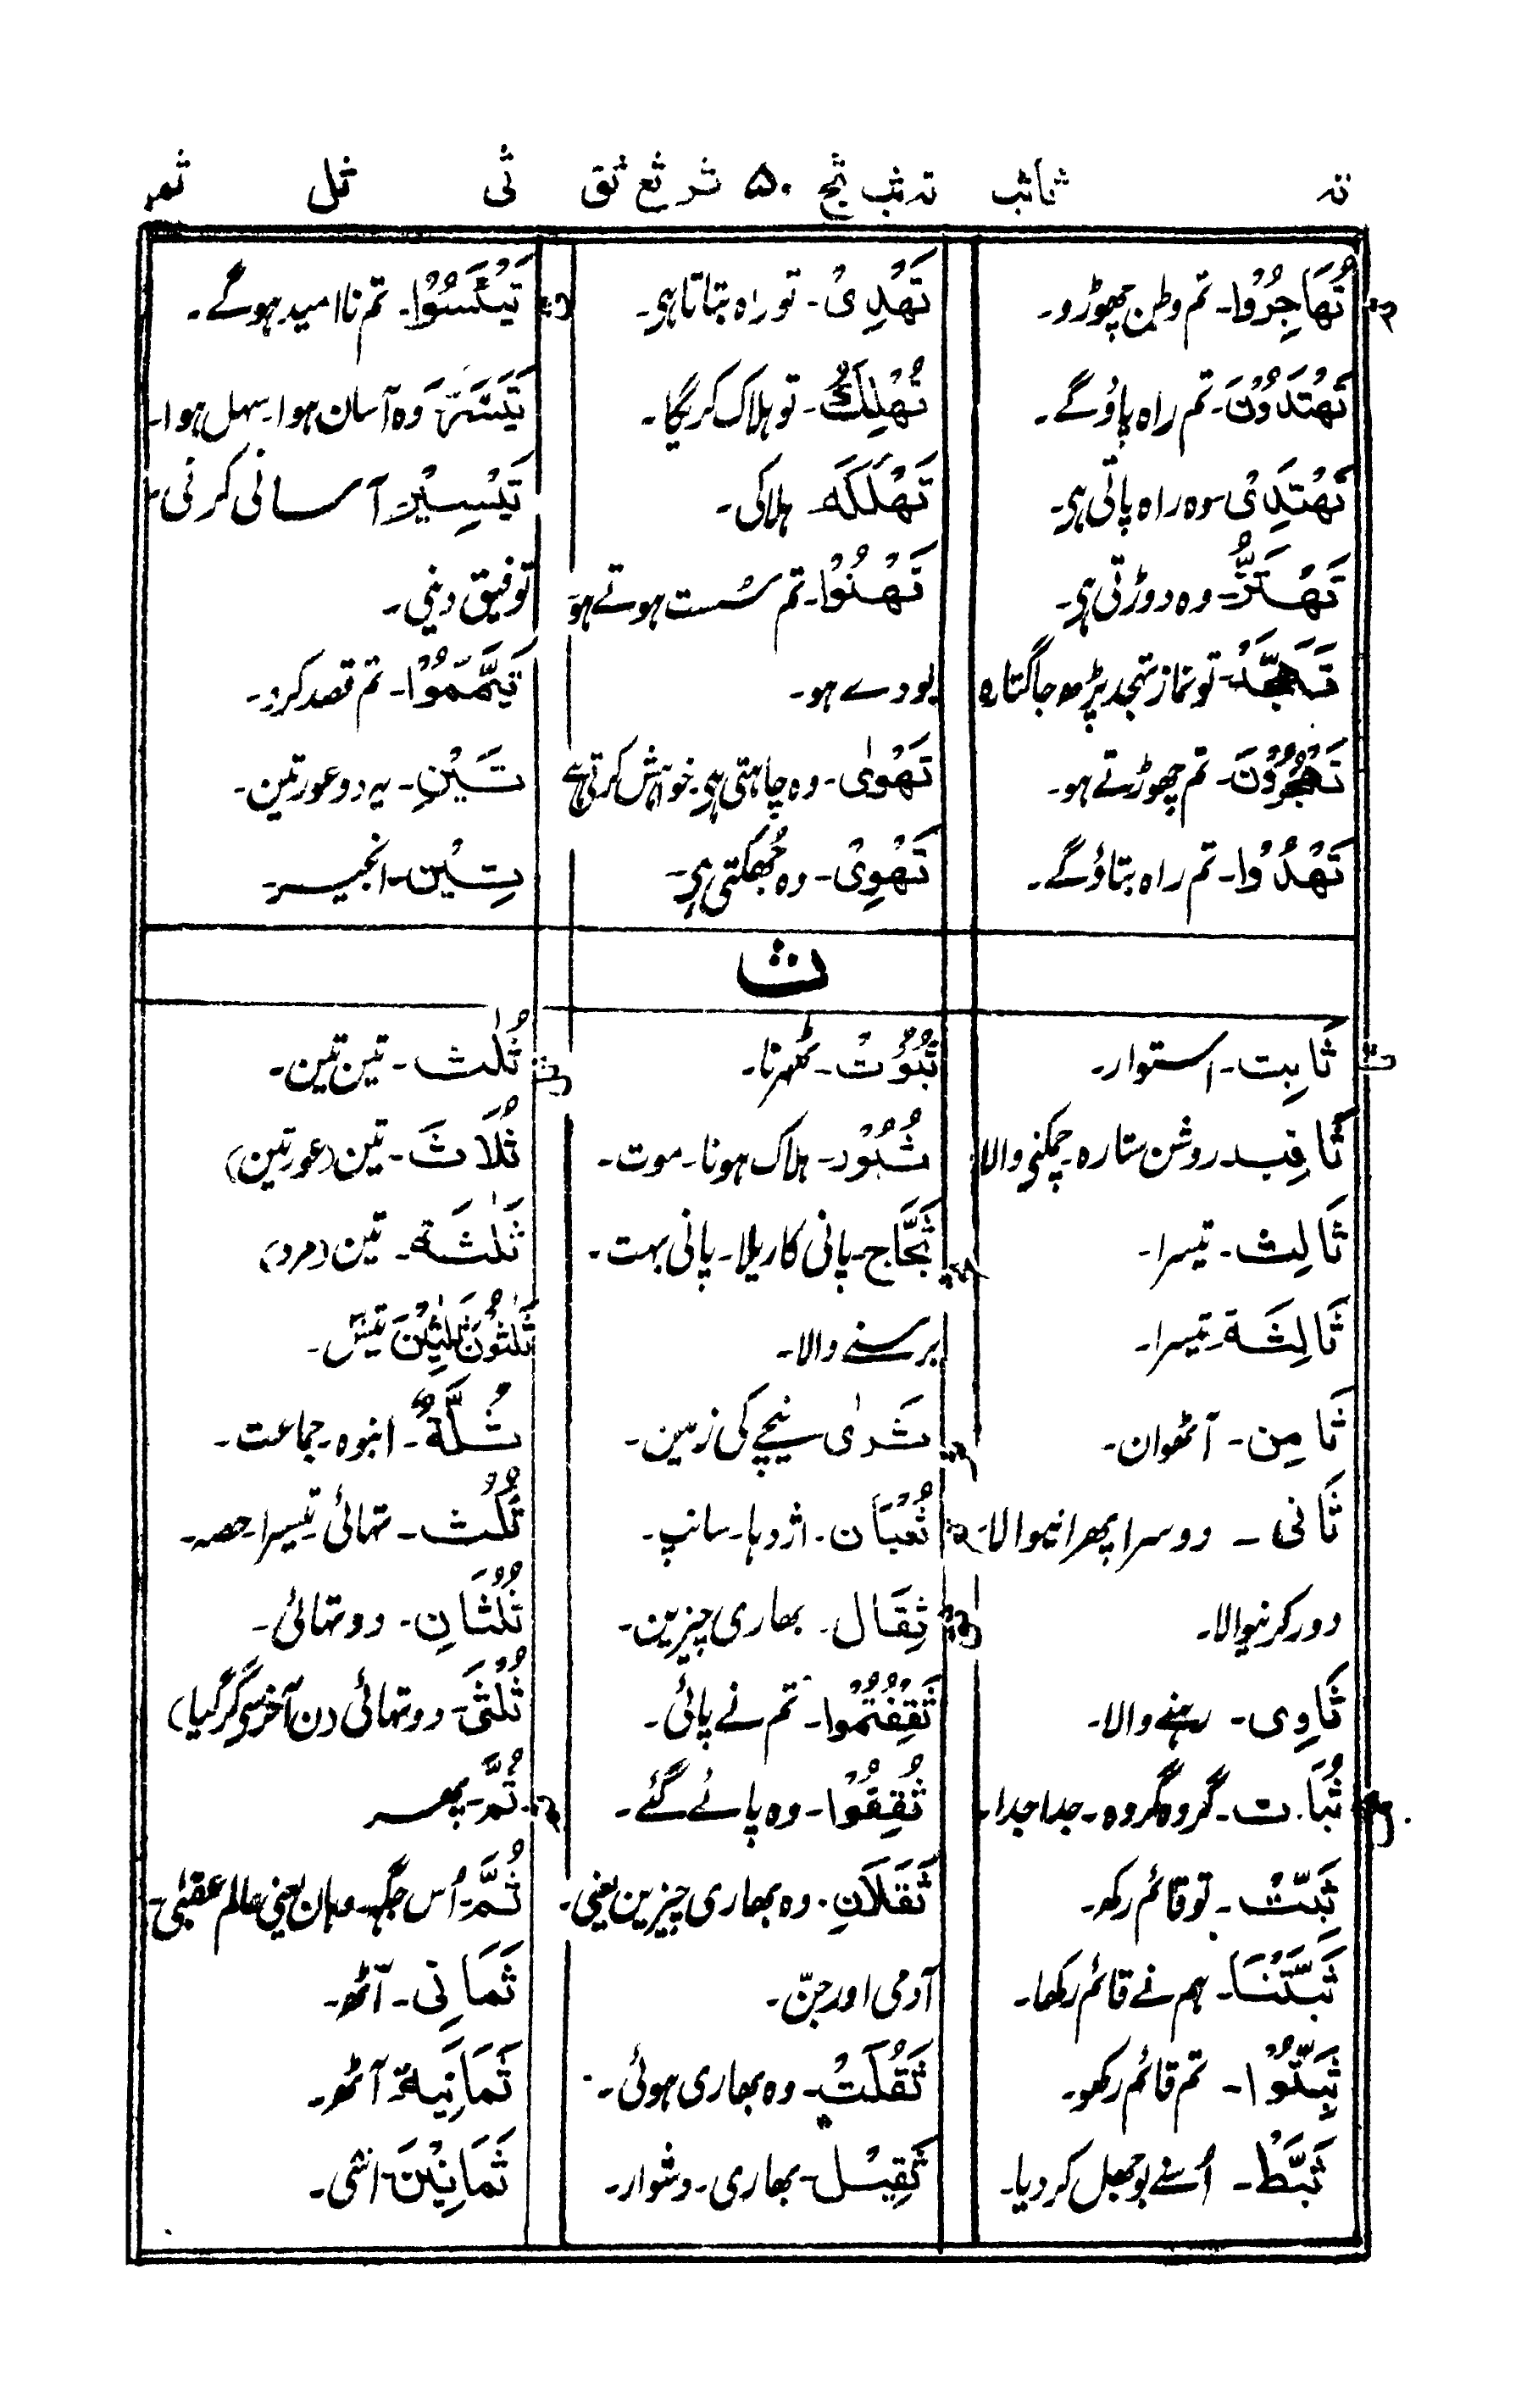 تہ ثا ثب تہ ثب ثج ۵۰ ثر ثع ثق ثی ثل ثم
تُهَاجِرُوْا۔ تم وطن چھوڑو۔
تَهْتَدُوْنَ۔ تم راہ پاؤگے۔
تَهْتَدِیْ۔ وہ راہ پاتی ہی۔
تَهْتَزُّ۔ وہ دوڑتی ہی۔
تَهَجَّدْ۔ تو نماز تہجد پڑھ جاگتا رہ
تَهْجُرُوْنَ۔ تم چھوڑتے ہو۔
تَهْدُوْا۔ تم راہ بتاؤگے۔
تَهْدِیْ۔ تو راہ بتاتا ہی۔
تُهْلِكُ۔ تو ہلاک کریگا۔
تَهْلُكَه۔ ہلاکی۔
تَهِنُوْا۔ تم سُست ہوتے ہو
بودے ہو۔
تَهْوٰی۔ وہ چاہتی ہی۔ خواہش کرتی ہے
تَهْوِیْ۔ وہ جُھکتی ہی۔
تَيْئَسُوْا۔ تم نا امید ہوگے۔
تَيَسَّرَ۔ وہ آسان ہوا۔ سہل ہوا۔
تَيْسِيْر۔ آسانی کرنی۔
توفیق دینی۔
تَيَمَّمُوْا۔ تم قصد کرو۔
تَيْنِ۔ یہ دو عورتین۔
تِيْن۔ انجیر۔
ث
ثَابِت۔ استوار۔
ثَاقِب۔ روشن ستارہ۔ چمکنے والا
ثَالِث۔ تیسرا۔
ثَالِثَة۔ تیسرا۔
ثَامِن۔ آٹھوان۔
ثَانی۔ دوسرا پھرانیوالا۔
دور کرنیوالا۔
ثَاوِی۔ رہنے والا۔
ثُبَات۔ گروہ گروہ۔ جدا جدا۔
ثَبِّتْ۔ تو قائم رکھ۔
ثَبَّتْنَا۔ ہم نے قائم رکھا۔
ثَبِّتُوْا۔ تم قائم رکھو۔
ثَبَّطَ۔ اُسنے بوجھل کردیا۔
ثُبُوْت۔ ٹھہرنا۔
ثُبُوْر۔ ہلاک ہونا۔ موت۔
ثَجَّاج۔ پانی کا ریلا۔ پانی بہت۔
برسنے والا۔
ثَرٰی نیچے کی زمین۔
ثُعْبَان۔ اژدہا۔ سانپ۔
ثِقَال۔ بھاری چیزین۔
ثَقِفْتُمُوْا۔ تم نے پائی۔
ثُقِفُوْا۔ وہ پائے گئے۔
ثَقَلَانِ۔ وہ بھاری چیزین یعنی۔
آدمی اور جنّ۔
ثَقُلَتْ۔ وہ بھاری ہوئی۔
ثَقِيْل۔ بھاری۔ دشوار۔
ثُلٰث۔ تین تین۔
ثَلَاث۔ تین (عورتین)
ثَلٰثَة۔ تین (مرد)
ثَلٰثُوْنَ ثَلٰثِيْنَ تیس۔
ثُلَّةٌ۔ انبوہ۔ جماعت۔
ثُلُث۔ تہائی۔ تیسرا حصہ۔
ثُلُثَانِ۔ دو تہائی۔
ثُلُثَیْ۔ دو تہائی (دن آخر سے گر گیا)
ثُمَّ۔ پھر
ثَمَّ۔ اُس جگہ۔ وہان یعنی عالم عقبٰی۔
ثَمَانِی۔ آٹھ۔
ثَمَانِيَة۔ آٹھ۔
ثَمَانِيْنَ۔ اسّی۔